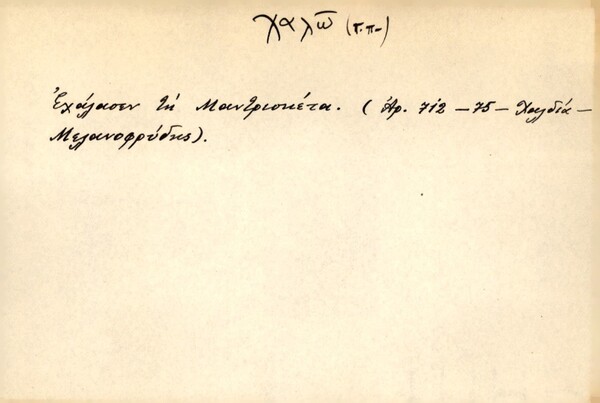 χαλῶ (Γ.Π.)
Ἐχάλασεν τὴ Μαντρισκέτα. (Ἀρ. 712 – 75 – Χαλδία –
Μελανοφρύδης).